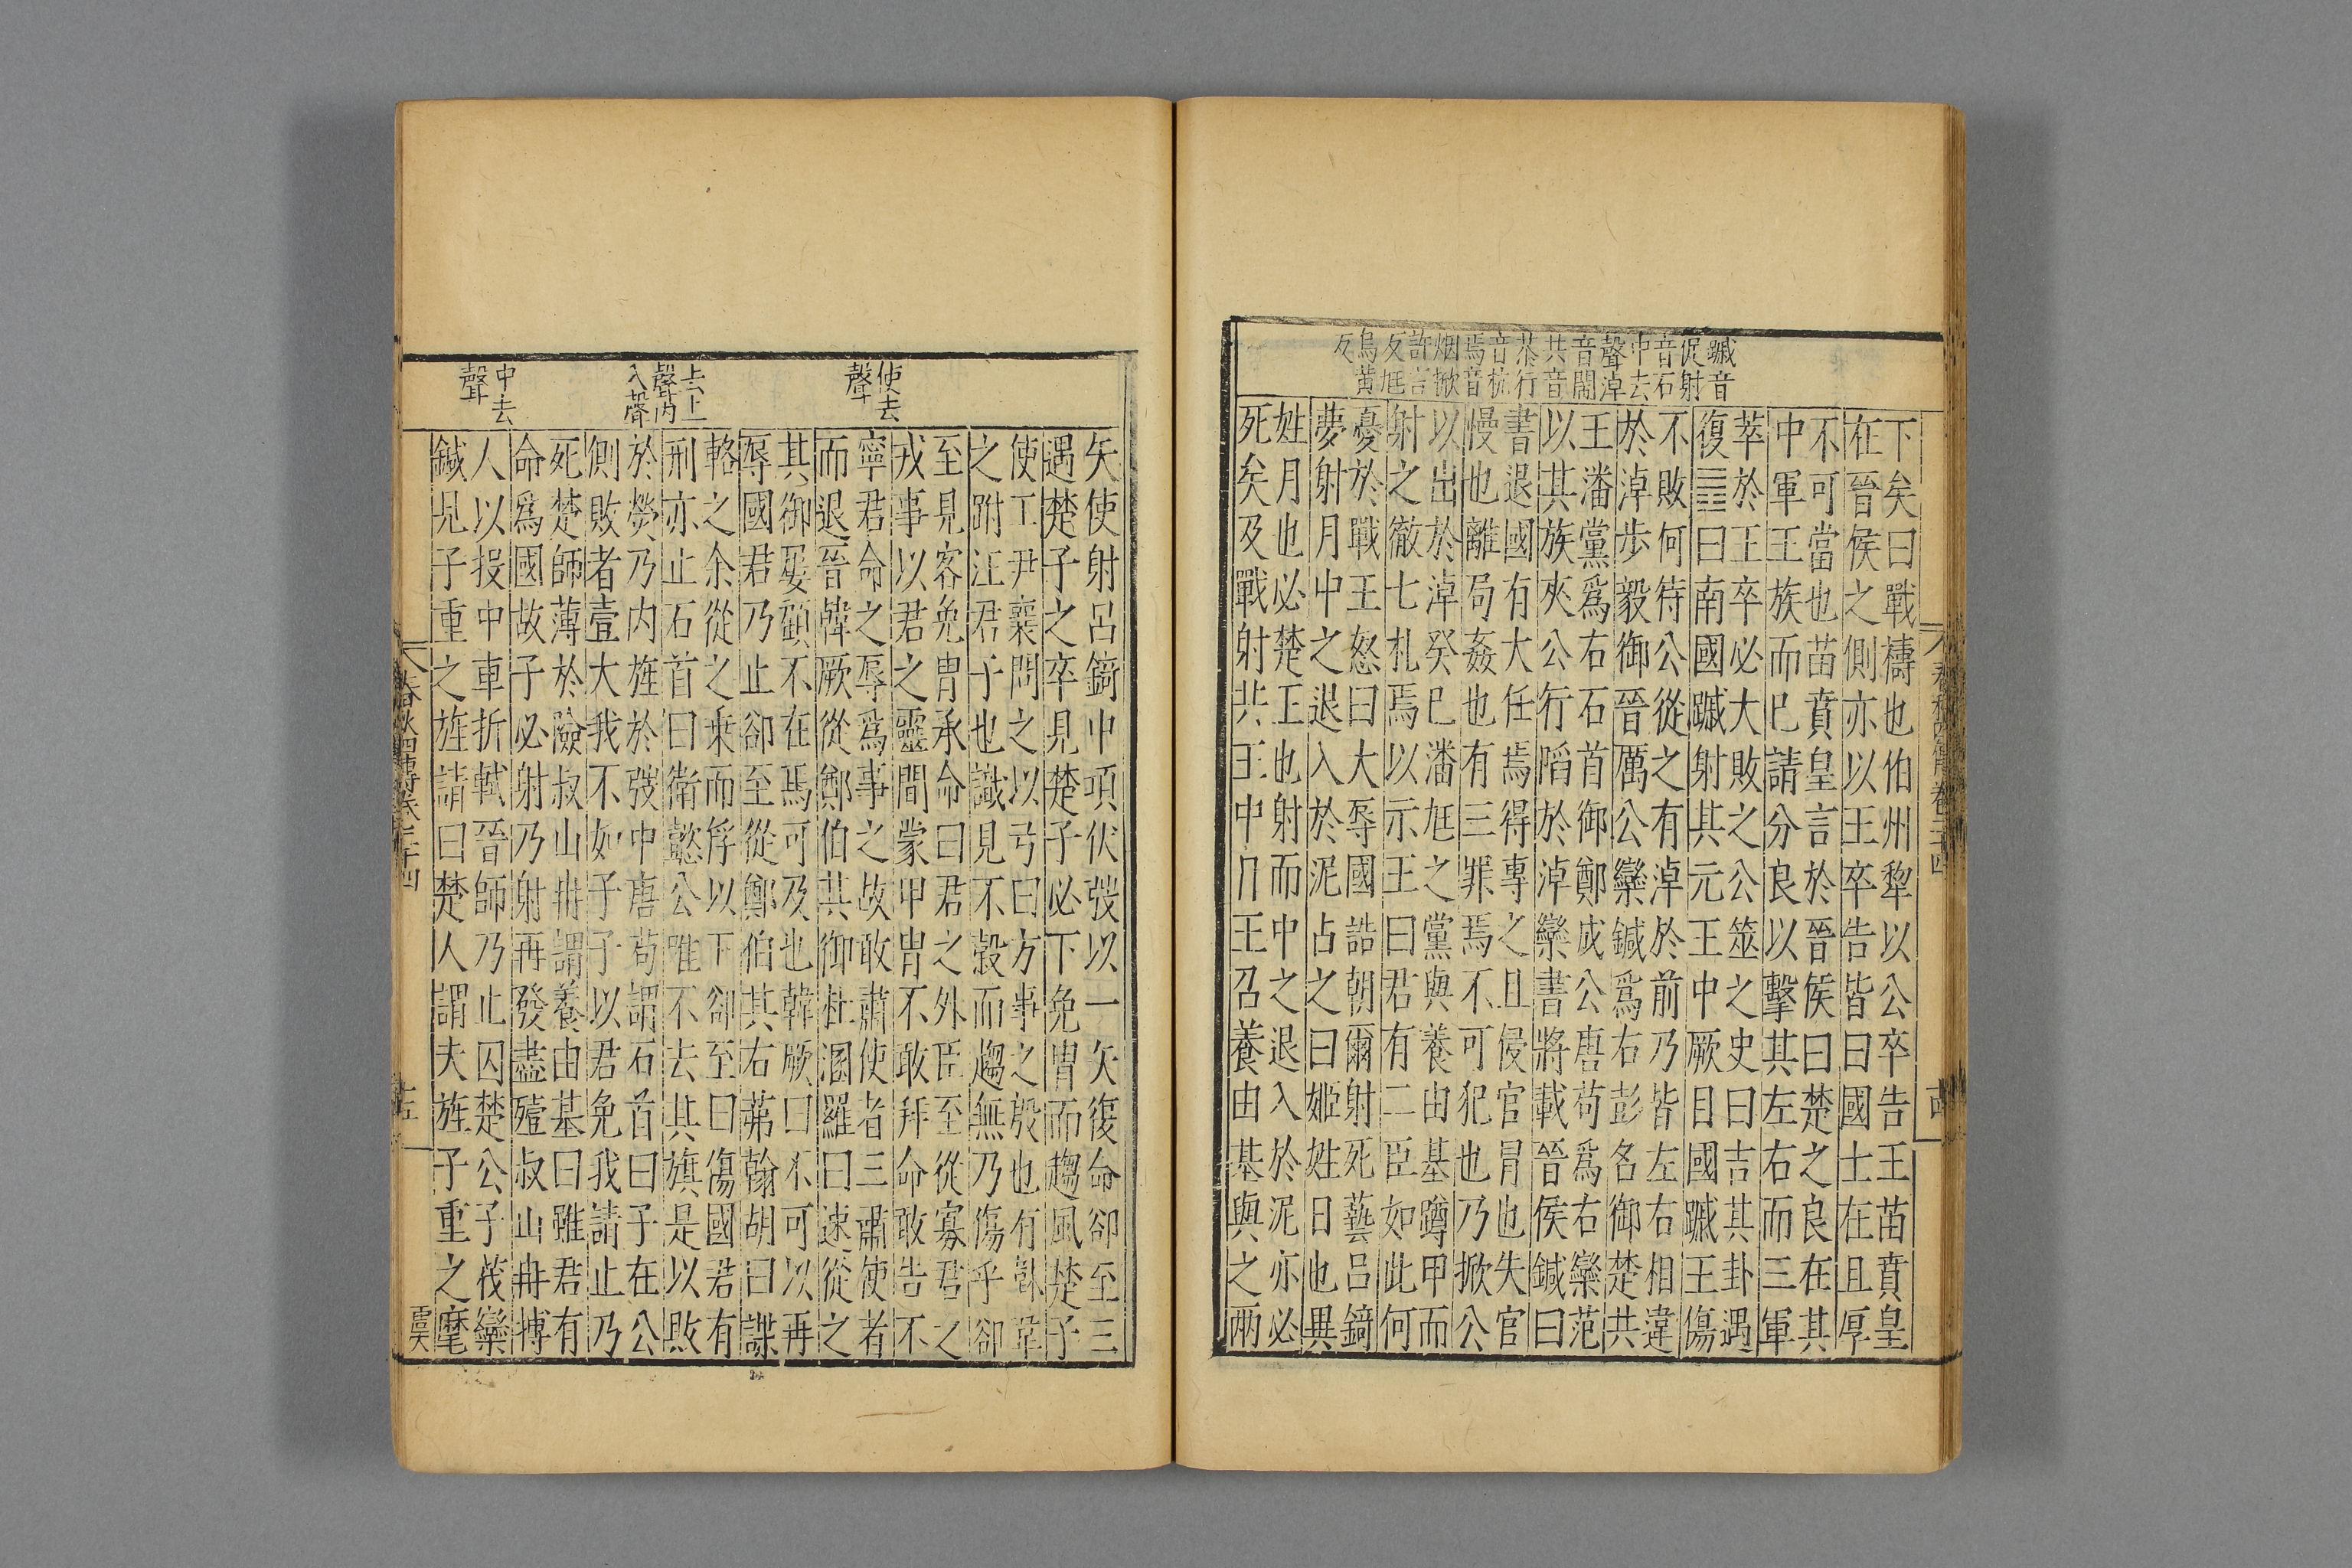 蹙音
促射
音石
中去
聲淖
音閙
共音
恭行
音杭
焉音
烟掀
許言
反尫
烏黃
反
下矣曰戰禱也伯州犂以公卒告王苗賁皇
在晉侯之側亦以王卒告皆曰國士在且厚
不可當也苗賁皇言於晉侯曰楚之良在其
中軍王族而已請分良以擊其左右而三軍
萃於王卒必大敗之公筮之史曰吉其卦遇
復䷗曰南國蹙射其元王中厥目國蹙王傷
不敗何待公從之有淖於前乃皆左右相違
於淖步毅御晉厲公欒鍼爲右彭名御楚共
王潘黨爲右石首御鄭成公唐苟爲右欒范
以其族夾公行陷於淖欒書將載晉侯鍼曰
書退國有大任焉得專之且侵官冒也失官
慢也離局姦也有三罪焉不可犯也乃掀公
以出於淖癸巳潘尫之黨與養由基蹲甲而
射之徹七札焉以示王曰君有二臣如此何
憂於戰王怒曰大辱國詰朝爾射死藝呂錡
夢射月中之退入於泥占之曰姬姓日也異
姓月也必楚王也射而中之退入於泥亦必
死矣及戰射共王中目王召養由基與之兩
使去
聲
去上
聲內
入聲
中去
聲
矢使射呂錡中項伏弢以一矢復命卻至三
遇楚子之卒見楚子必下免冑而趨風楚子
使工尹襄問之以弓曰方事之殷也有韎韋
之跗注君子也識見不穀而趨無乃傷乎卻
至見客免冑承命曰君之外臣至從寡君之
戎事以君之靈間蒙甲冑不敢拜命敢告不
寧君命之辱爲事之故敢肅使者三肅使者
而退晉韓厥從鄭伯其御杜溷羅曰速從之
其御屢顧不在馬可及也韓厥曰不可以再
辱國君乃止卻至從鄭伯其右茀翰胡曰諜
輅之余從之乘而俘以下卻至曰傷國君有
刑亦止石首曰衛懿公唯不去其旗是以敗
於熒乃内旌於弢中唐苟謂石首曰子在公
側敗者壹大我不如子子以君免我請止乃
死楚師薄於險叔山冉謂養由基曰雖君有
命爲國故子必射乃射再發盡殪叔山冉搏
人以投中車折軾晉師乃止囚楚公子茷欒
鍼見子重之旌請曰楚人謂夫旌子重之麾